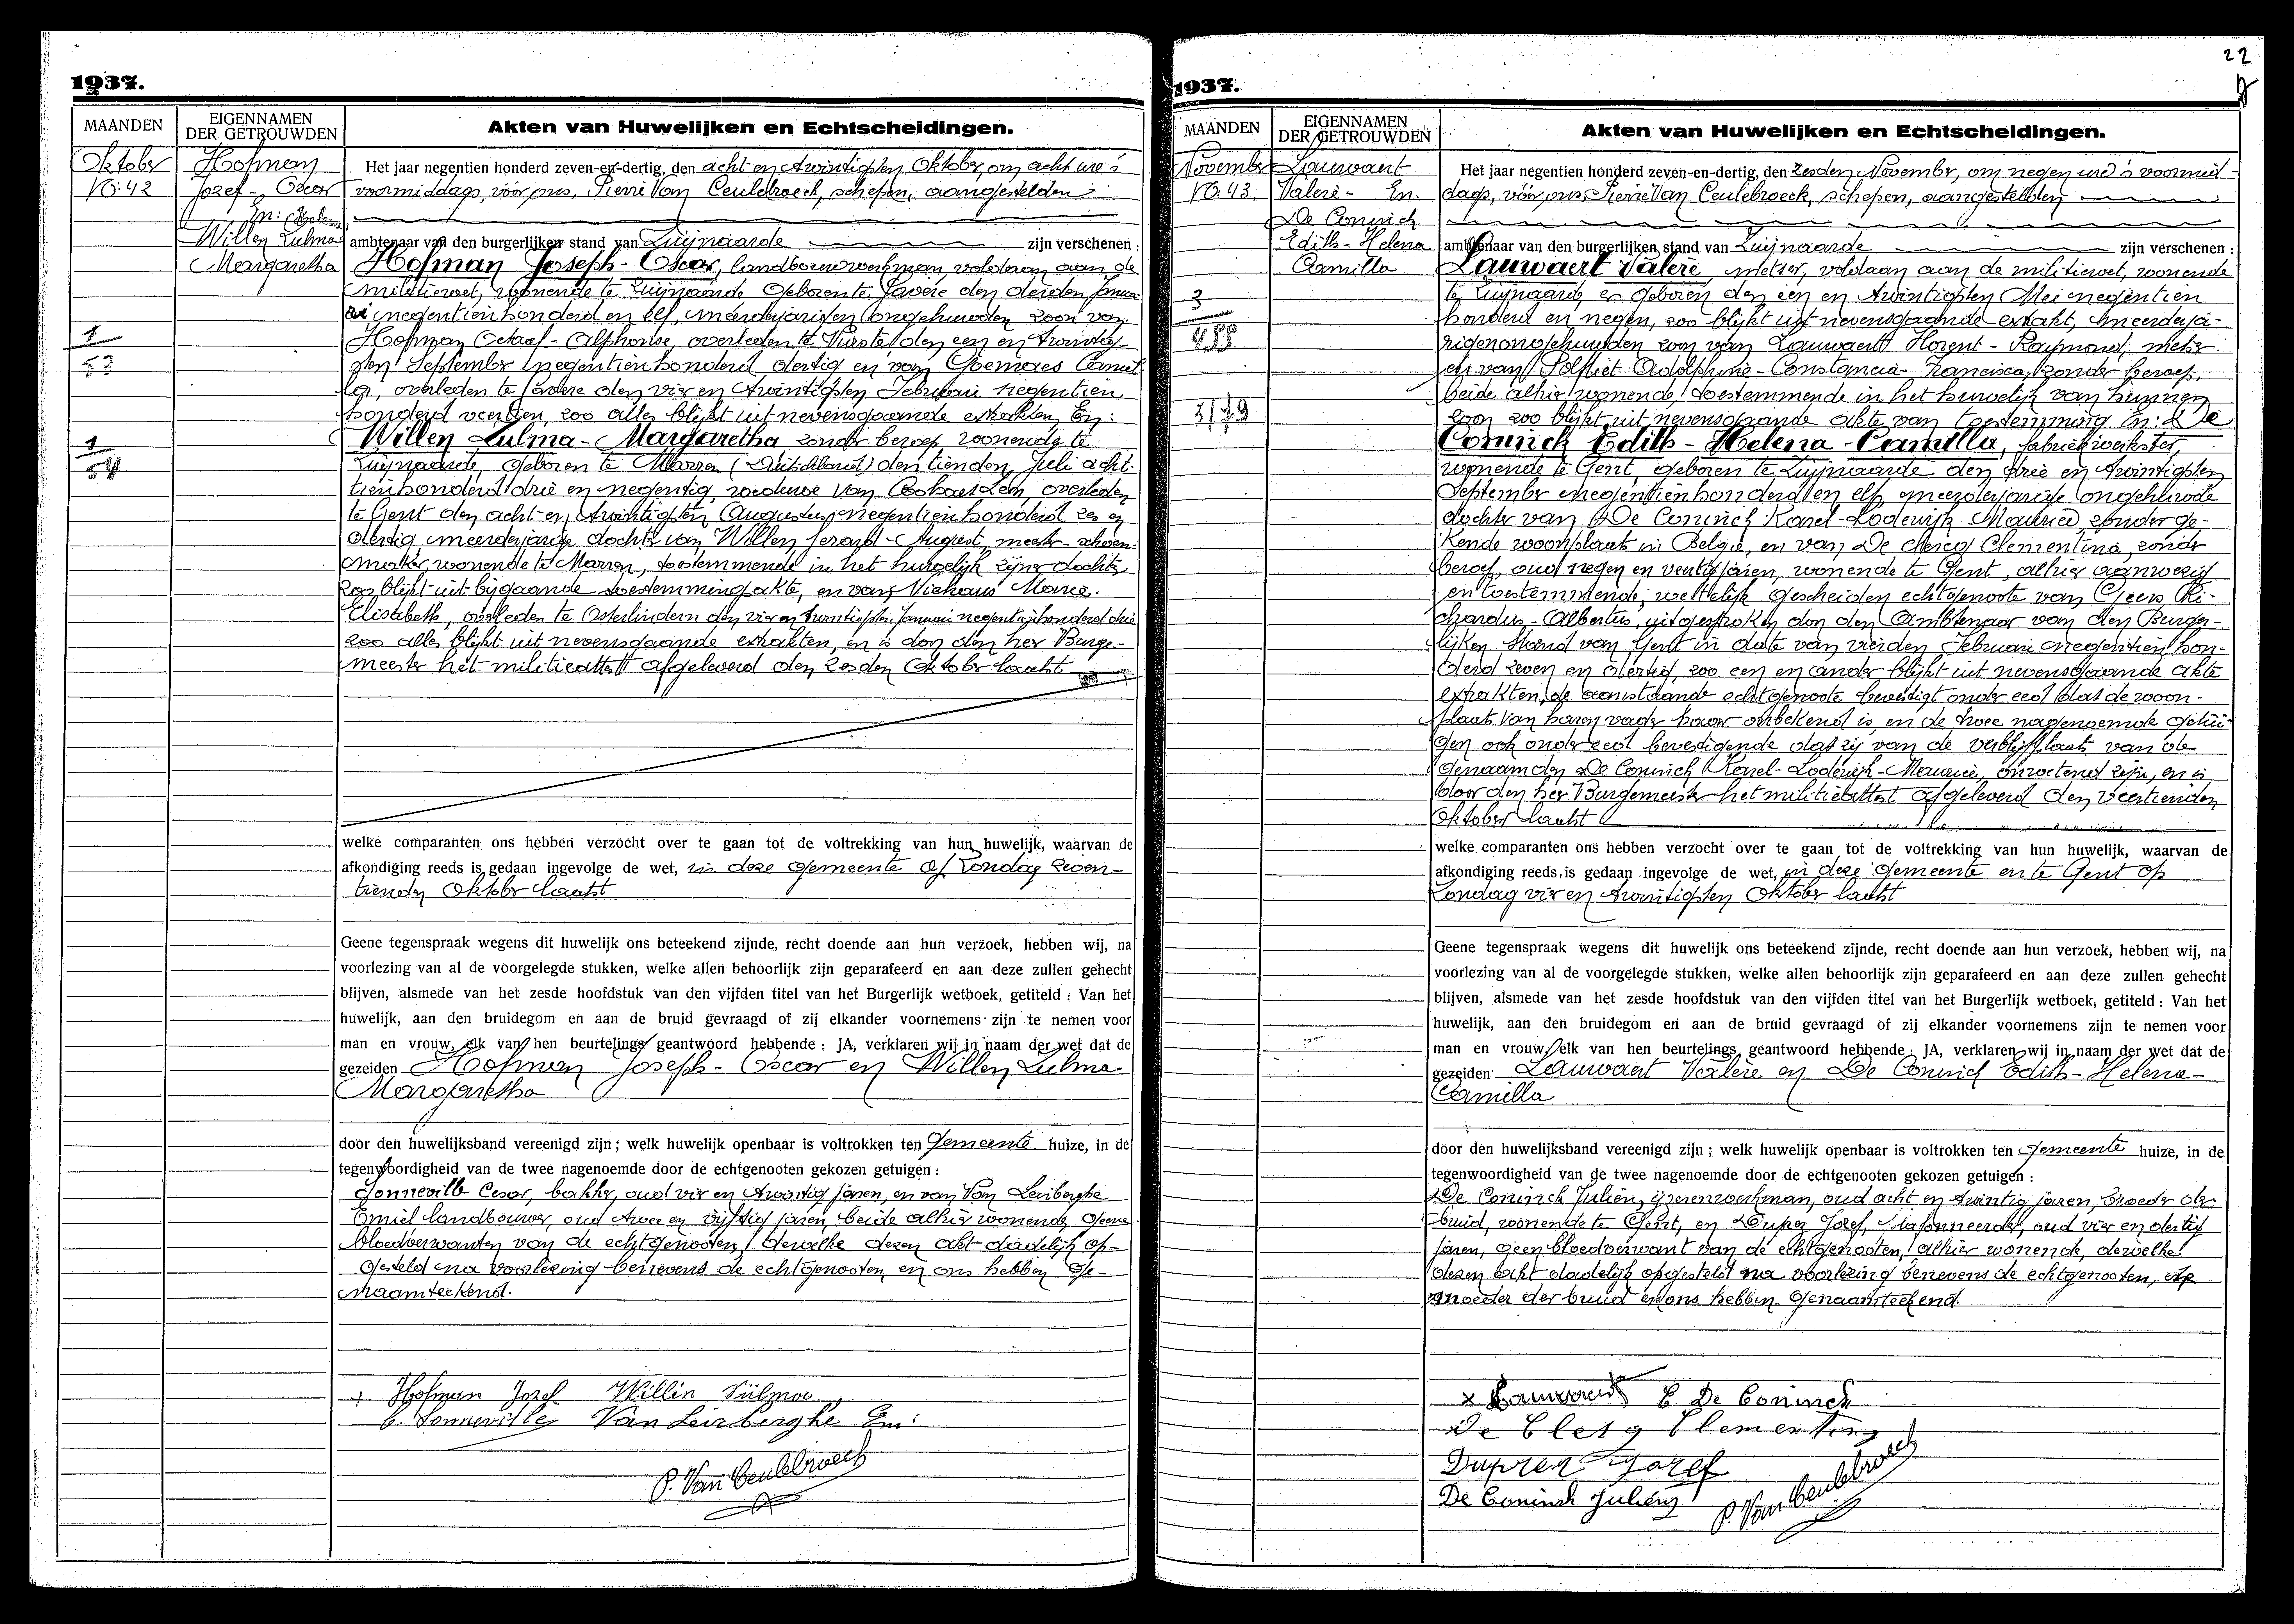 1937.
MAANDEN
EIGENNAMEN
DER GETROUWDEN
Akten van Huwelijken en Echtscheidingen.
Oktober
No: 42
Hofman
Jozef - Oscar
En:
Willen Zulma
Margaretha
1
53
1
54
Het jaar negentien honderd zeven-en-dertig, den acht en twintigsten Oktober, om acht ure 's
voormiddags, vóór ons, Pierre Van Ceulebroeck, schepen, aangestelden
ambtenaar van den burgerlijken stand van Zwijnaarde zijn verschenen :
Hofman Joseph - Oscar, landbouwwerkman, voldaan aan de
militiewet, wonende te Zwijnaarde geboren te Gavere den derden Janua-
ri negentienhonderd en elf, meerderjarigen ongehuwden zoon van
Hofman Octaaf - Alphonse, overleden te Vurste den een en twintig-
sten September negentienhonderd dertig en van Camil-
la, overleden te Gavere den vier en twintigsten Februari negentien
honderd veertien, zoo alles blijkt uit nevensgaande extrakten, En:
Willen Zulma - Margaretha, zonder beroep, woonende te
Zwijnaarde, geboren te Marren (Duitschland) den tienden Juli acht-
tienhonderd drie en negentig, weduwe van overleden
te Gent den acht en twintigsten Augustus negentienhonderd zes en
dertig meerderjarige dochter van Willen Gerard - August, meester - schoen-
maker, wonende te Marren, toestemmende in het huwelijk zijner dochter
zoo blijkt uit bijgaande toestemmingakte, en van Niehaus Maria -
Elisabeth, overleden te Osterlindern den vier en twintigsten Januari negentienhonderd drie
zoo alles blijkt uit nevensgaande extrakten, en is door den heer Burge-
meester het militieattest afgeleverd den zesden Oktober laatst
welke comparanten ons hebben verzocht over te gaan tot de voltrekking van hun huwelijk, waarvan de
afkondiging reeds is gedaan ingevolge de wet, in deze gemeente op Zondag zeven-
tienden Oktober laatst
Geene tegenspraak wegens dit huwelijk ons beteekend zijnde, recht doende aan hun verzoek, hebben wij, na
voorlezing van al de voorgelegde stukken, welke allen behoorlijk zijn geparafeerd en aan deze zullen gehecht
blijven, alsmede van het zesde hoofdstuk van den vijfden titel van het Burgerlijk wetboek, getiteld : Van het
huwelijk, aan den bruidegom en aan de bruid gevraagd of zij elkander voornemens zijn te nemen voor
man en vrouw, elk van hen beurtelings geantwoord hebbende : JA, verklaren wij in naam der wet dat de
gezeiden Hofman Joseph - Oscar en Willen Zulma -
Margaretha
door den huwelijksband vereenigd zijn ; welk huwelijk openbaar is voltrokken ten Gemeente huize, in de
tegenwoordigheid van de twee nagenoemde door de echtgenooten gekozen getuigen :
Sonneville Cesar, bakker, oud vier en twintig jaren, en van Van Leirberghe
Emiel landbouwer, oud twee en vijftig jaren, beide alhier wonende, geene
bloedverwanten van de echtgenooten, dewelke dezen akt dadelijk op-
gesteld na voorlezing benevens de echtgenooten, en ons hebben ge-
naamteekend.
Hofman Jozef Willen Zülma
C. Sonneville Van Leirberghe Em:
P. Van Ceulebroeck
22
1937.
MAANDEN
EIGENNAMEN
DER GETROUWDEN
Akten van Huwelijken en Echtscheidingen.
November
No. 43.
Lauwaert
Valere - En.
De Coninck
Edith - Helena
Camilla
3
455
3/79
Het jaar negentien honderd zeven-en-dertig, den zesden November, om negen ure 's voormid-
dags, vóór ons, Pierre Van Ceulebroeck, schepen, aangestelden
ambtenaar van den burgerlijken stand van Zwijnaarde zijn verschenen :
Lauwaert Valere, metser, voldaan aan de militiewet, wonende
te Zwijnaarde er geboren den een en twintigsten Mei negentien
honderd en negen, zoo blijkt uit nevensgaande extrakt, meerderja-
rigen ongehuwden zoon van Lauwaert Florent - Raymond, metser
en van Adolphine - Constancia - Francisca, zonder beroep,
beide alhier wonende, toestemmende in het huwelijk van hunnen
zoon zoo blijkt uit nevensgaande akte van toestemming En: De
Coninck Edith - Helena - Camilla, fabriekwerkster,
wonende te Gent, geboren te Zwijnaarde den drie en twintigsten
September negentienhonderd en elf, meerderjarige ongehuwde
dochter van De Coninck Karel - Lodewijk Maurice, zonder ge-
kende woonplaats in België, en van De clercq Clementina, zonder
beroep, oud negen en veertig jaren, wonende te Gent, alhier aanwezig
en toestemmende, wettelijk gescheiden echtgenoote van Geers Ri-
chardus - Albertus, uitgesproken door den Ambtenaar van den Burger-
lijken Stand van Gent in date van vierden Februari negentien hon-
derd zeven en dertig, zoo een en ander blijkt uit nevensgaande akte
extrakten, de aanstaande echtgenoote bevestigt onder eed dat de woon-
plaats van haren vader haar onbekend is, en de twee nagenoemde getui-
gen ook onder eed bevestigende dat zij van de verblijfplaats van de
genaamden De Coninck Karel - Lodewijk - Maurice, onwetend zijn, en is
door den heer Burgemeester het militieattest afgeleverd den veertienden
Oktober laatst
welke comparanten ons hebben verzocht over te gaan tot de voltrekking van hun huwelijk, waarvan de
afkondiging reeds is gedaan ingevolge de wet, in deze gemeente en te Gent op
Zondag vier en twintigsten Oktober laatst
Geene tegenspraak wegens dit huwelijk ons beteekend zijnde, recht doende aan hun verzoek, hebben wij, na
voorlezing van al de voorgelegde stukken, welke allen behoorlijk zijn geparafeerd en aan deze zullen gehecht
blijven, alsmede van het zesde hoofdstuk van den vijfden titel van het Burgerlijk wetboek, getiteld : Van het
huwelijk, aan den bruidegom en aan de bruid gevraagd of zij elkander voornemens zijn te nemen voor
man en vrouw, elk van hen beurtelings geantwoord hebbende : JA, verklaren wij in naam der wet dat de
gezeiden Lauwaert Valère en De Coninck Edith - Helena -
Camilla
door den huwelijksband vereenigd zijn ; welk huwelijk openbaar is voltrokken ten gemeente huize, in de
tegenwoordigheid van de twee nagenoemde door de echtgenooten gekozen getuigen :
De Coninck Julien, ijzerenwerkman, oud acht en twintig jaren, broeder der
bruid, wonende te Gent, en Duprez Jozef, plafonneerder, oud vier en dertig
jaren, geen bloedverwant van de echtgenooten, alhier wonende, dewelke
dezen akt dadelijk opgesteld na voorlezing benevens de echtgenooten, de
moeder der bruid en ons hebben genaamteekend.
x Lauwaert E De Coninck
De Clerq Clementina
Duprez Jozef
De Coninck Julien
P. Van Ceulebroeck